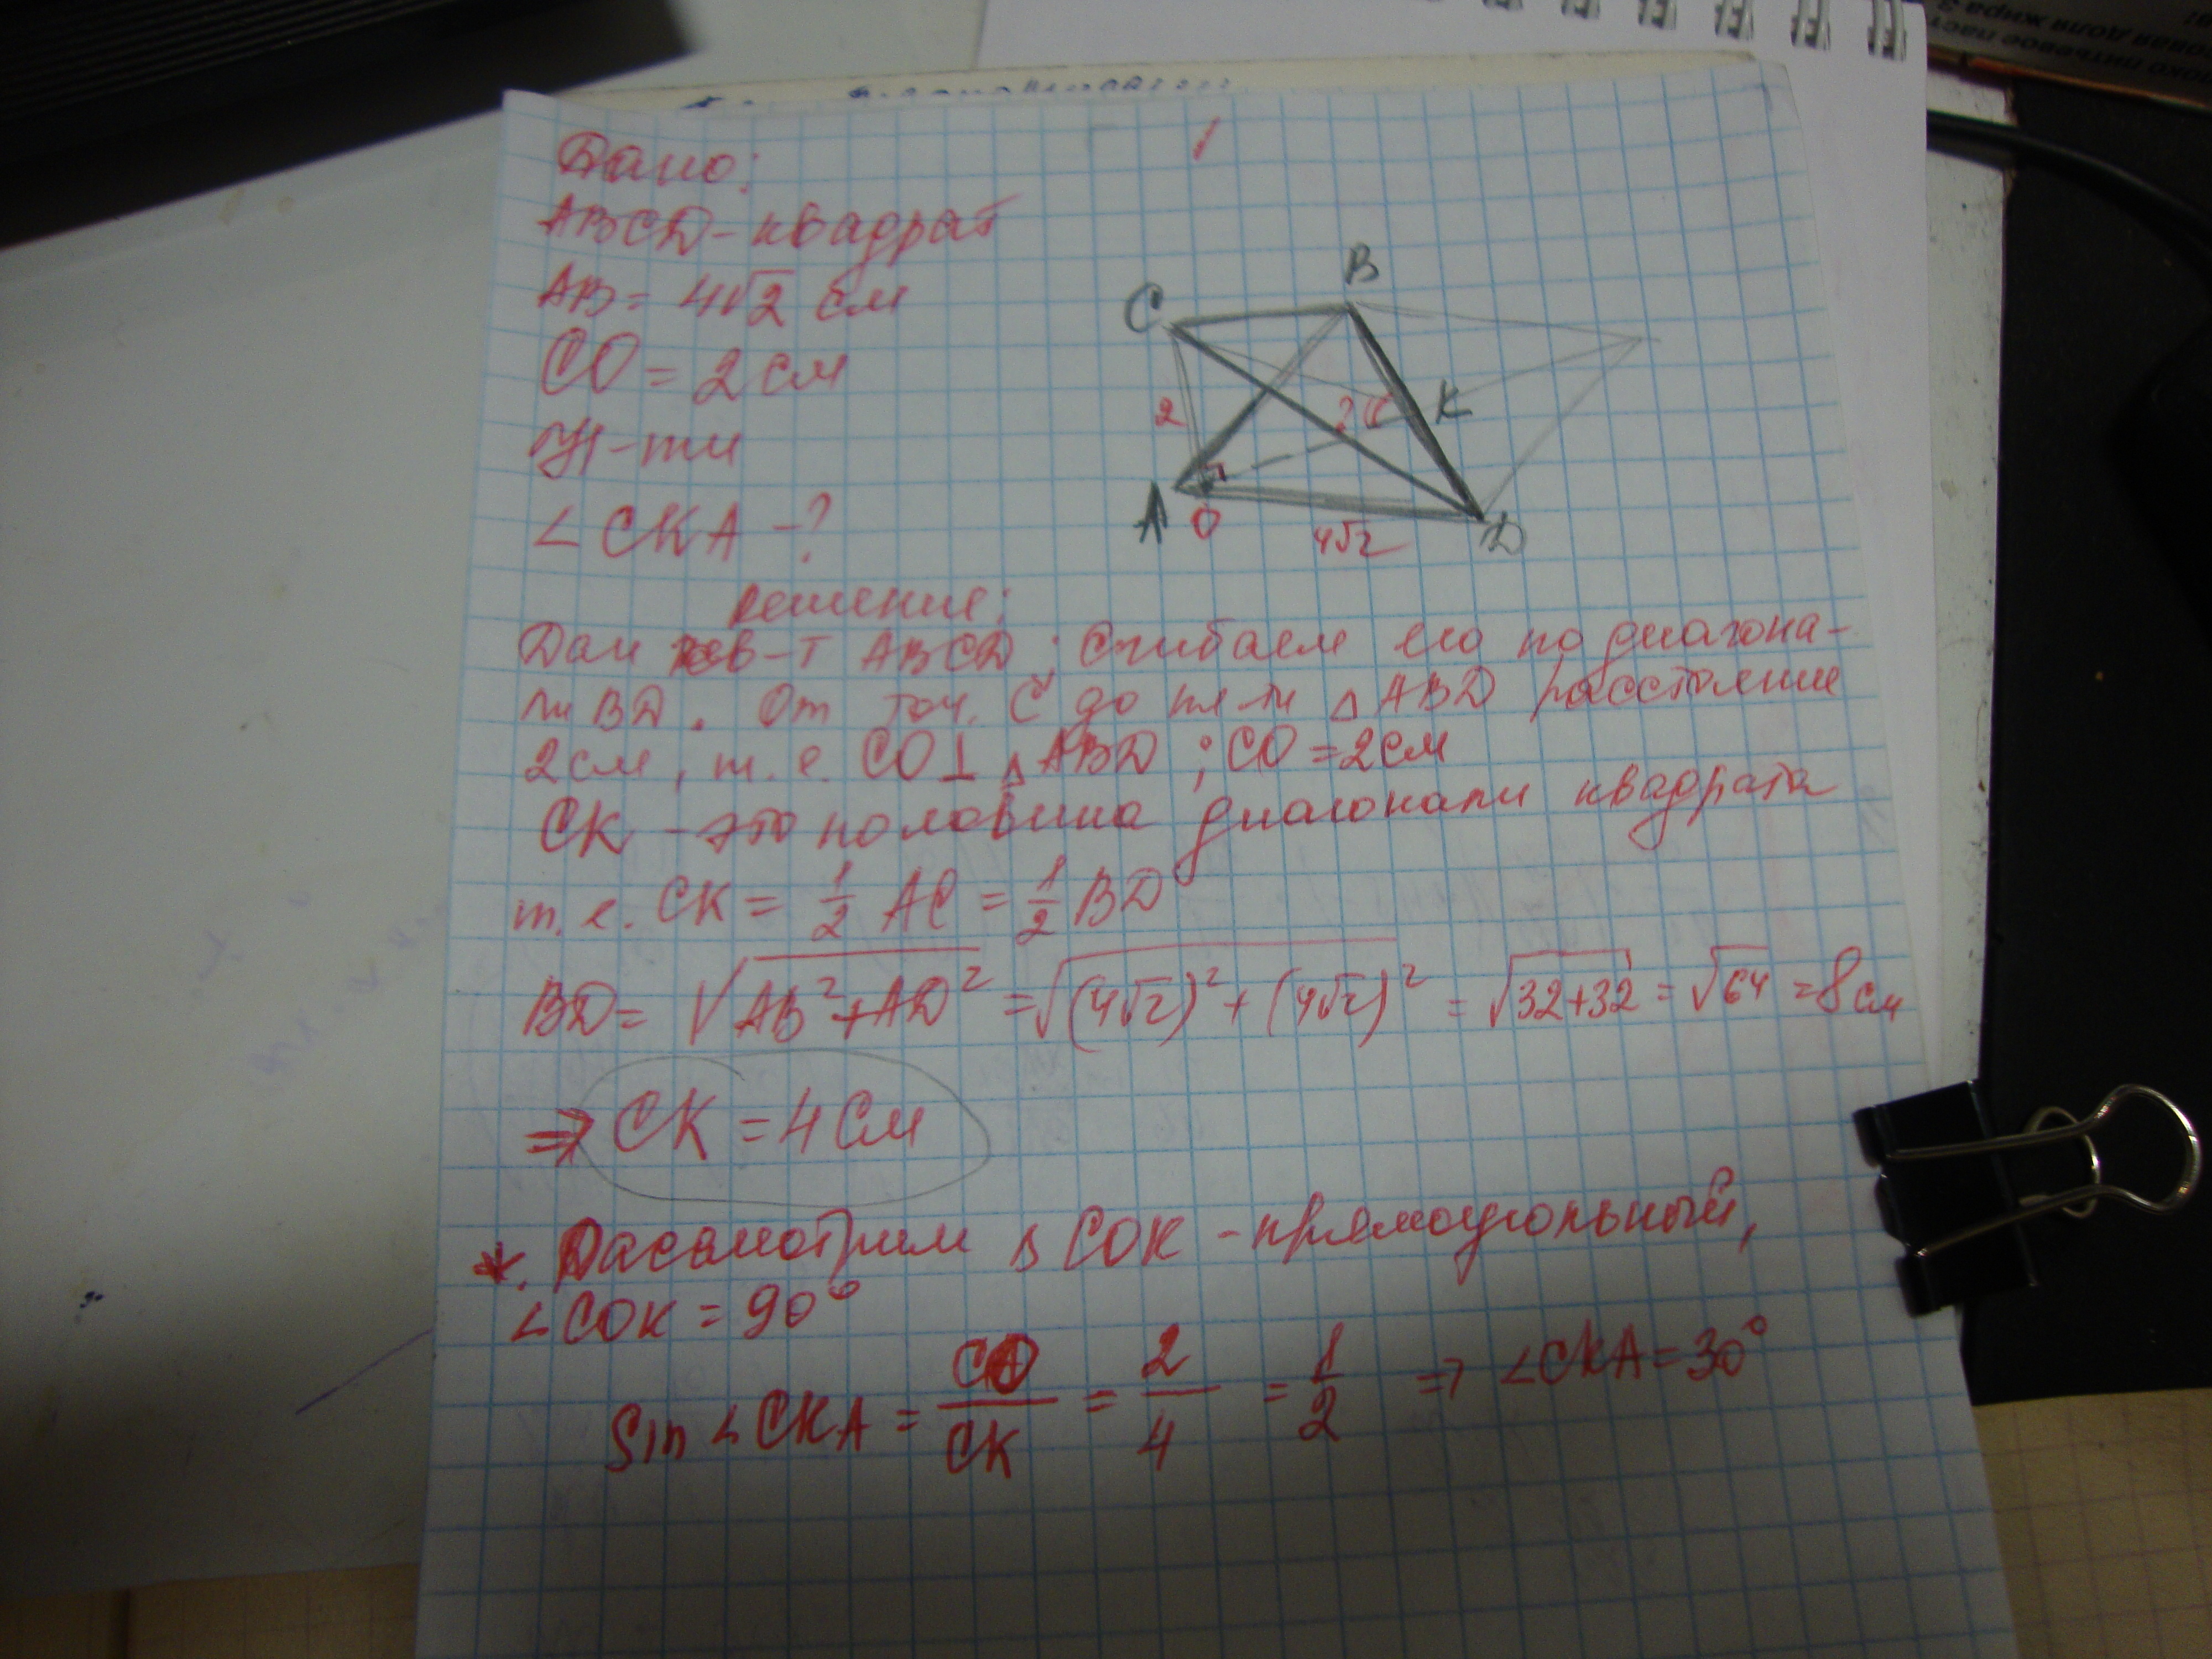 1
Дано:
ABCD - квадрат
AB = 4√2 см
CO = 2 см
Н-ти
∠ CKA - ?
C
B
2
? α
K
A
O
4√2
D
Решение:
Дан кв-т ABCD; Сгибаем его по диагона-
ли BD. От точ. C до пл-ти △ ABD расстояние
2см, т.е. CO ⊥ △ ABD ; CO = 2см
CK - это половина диагонали квадрата
т.е. CK = 1/2 AC = 1/2 BD
BD = √(AB² + AD²) = √((4√2)² + (4√2)²) = √(32+32) = √64 = 8 см
⇒ CK = 4 см
*. Рассмотрим △ COK - прямоугольный,
∠ COK = 90°
Sin ∠ CKA = CO/CK = 2/4 = 1/2 ⇒ ∠CKA = 30°